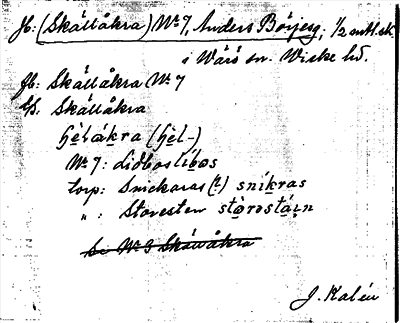 Jb: (Skällåkra) Nr 7, Anders Börjesg, 1/2 mtl. sk.
i Wärö sn. Wiske hd.
Jb: Skällåkra Nr 7
Gs: Skällåkra
hèlåkra (hèl-)
Nr 7: Lidbos líbos
torp: Snickaras (?) sníkras
„: Storesten stòrəstáin
Se Nr 3 Skäuåkra
J. Kalén